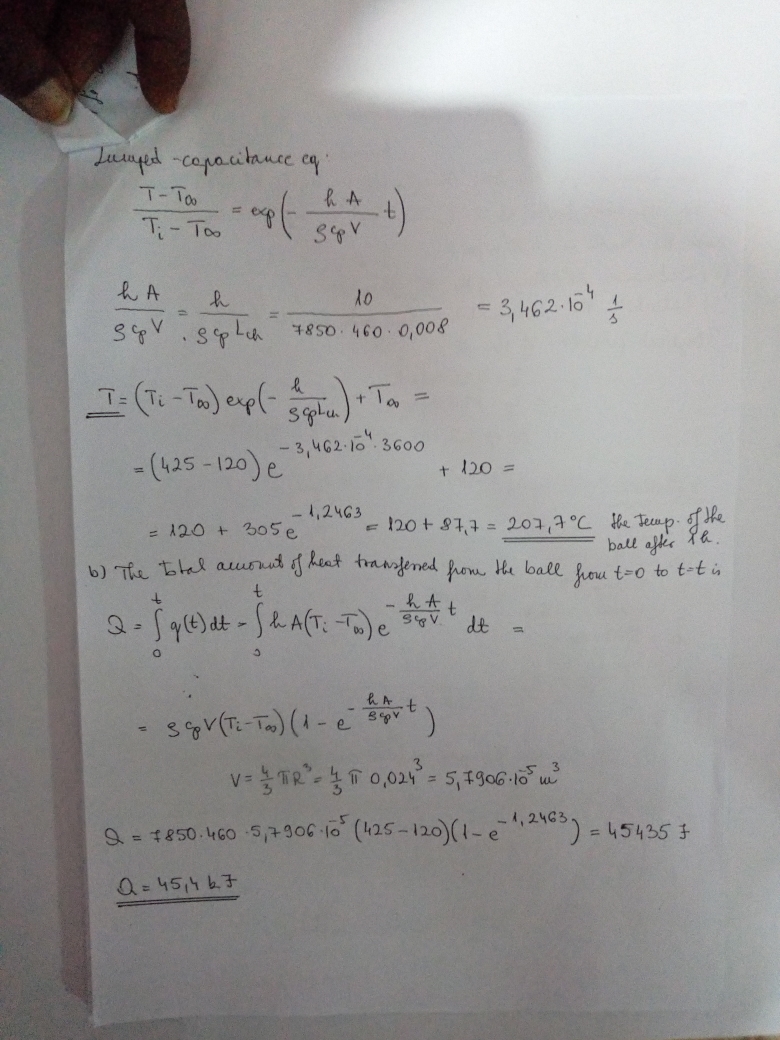 Lumped-capacitance eq:
(T - T∞)/(Ti - T∞) = exp(- (hA)/(ρcpV) t)
(hA)/(ρcpV) = h/(ρcpLch) = 10/(7850·460·0,008) = 3,462·10⁻⁴ 1/s
T = (Ti - T∞) exp(- h/(ρcpLch)) + T∞ =
= (425 - 120) e^(-3,462·10⁻⁴·3600) + 120 =
= 120 + 305e^(-1,2463) = 120 + 87,7 = 207,7°C the temp. of the
ball after 1h.
b) The total amount of heat transferred from the ball from t=0 to t=t is
Q = ∫₀ᵗ q(t)dt = ∫₀ᵗ hA(Ti - T∞) e^(- (hA)/(ρcpV) t) dt =
⋮
= ρcpV(Ti - T∞)(1 - e^(- (hA)/(ρcpV) t))
V = 4/3 πR³ = 4/3 π 0,024³ = 5,7906·10⁻⁵ m³
Q = 7850·460·5,7906·10⁻⁵ (425-120)(1 - e^(-1,2463)) = 45435 J
Q = 45,4 kJ